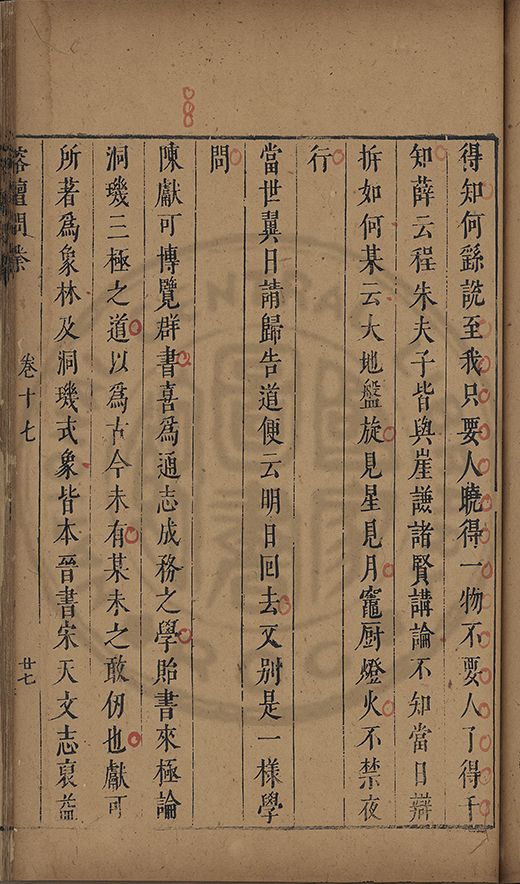 得知何繇說至我只要人曉得一物不要人了得千
知薛云程朱夫子皆與崖謙諸賢講論不知當日辯
拆如何某云大地盤旋見星見月竈厨燈火不禁夜
行
當世翼日請歸告道便云明日回去又別是一樣學
問
陳獻可博覽群書喜爲通志成務之學貽書來極論
洞璣三極之道以爲古今未有某未之敢仞也獻可
所著爲象林及洞璣式象皆本晉書宋天文志裒益
榕壇問業 卷十七 廿七